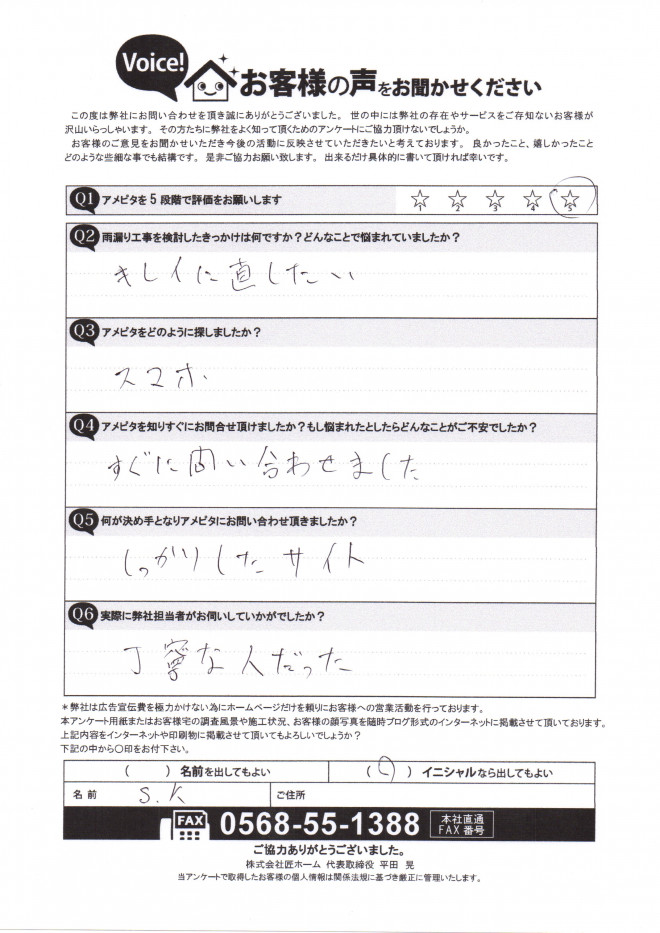 Voice!
お客様の声をお聞かせください
この度は弊社にお問い合わせを頂き誠にありがとうございました。 世の中には弊社の存在やサービスをご存知ないお客様が
沢山いらっしゃいます。 その方たちに弊社をよく知って頂くためのアンケートにご協力頂けないでしょうか。
お客様のご意見をお聞かせいただき今後の活動に反映させていただきたいと考えております。 良かったこと、嬉しかったこと
どのような些細な事でも結構です。 是非ご協力お願い致します。 出来るだけ具体的に書いて頂ければ幸いです。
Q1 アメピタを5段階で評価をお願いします ☆1 ☆2 ☆3 ☆4 ☆5
Q2 雨漏り工事を検討したきっかけは何ですか？どんなことで悩まれていましたか？
キレイに直したい
Q3 アメピタをどのように探しましたか？
スマホ
Q4 アメピタを知りすぐにお問合せ頂けましたか？もし悩まれたとしたらどんなことがご不安でしたか？
すぐに問い合わせました
Q5 何が決め手となりアメピタにお問い合わせ頂きましたか？
しっかりしたサイト
Q6 実際に弊社担当者がお伺いしていかがでしたか？
丁寧な人だった
＊弊社は広告宣伝費を極力かけない為にホームページだけを頼りにお客様への営業活動を行っております。
本アンケート用紙またはお客様宅の調査風景や施工状況、お客様の顔写真を随時ブログ形式のインターネットに掲載させて頂いております。
上記内容をインターネットや印刷物に掲載させて頂いてもよろしいでしょうか？
下記の中から〇印をお付下さい。
（　　）名前を出してもよい （〇）イニシャルなら出してもよい
名前 S.K ご住所
FAX 0568-55-1388 本社直通 FAX番号
ご協力ありがとうございました。
株式会社匠ホーム 代表取締役 平田 晃
当アンケートで取得したお客様の個人情報は関係法規に基づき厳正に管理いたします。